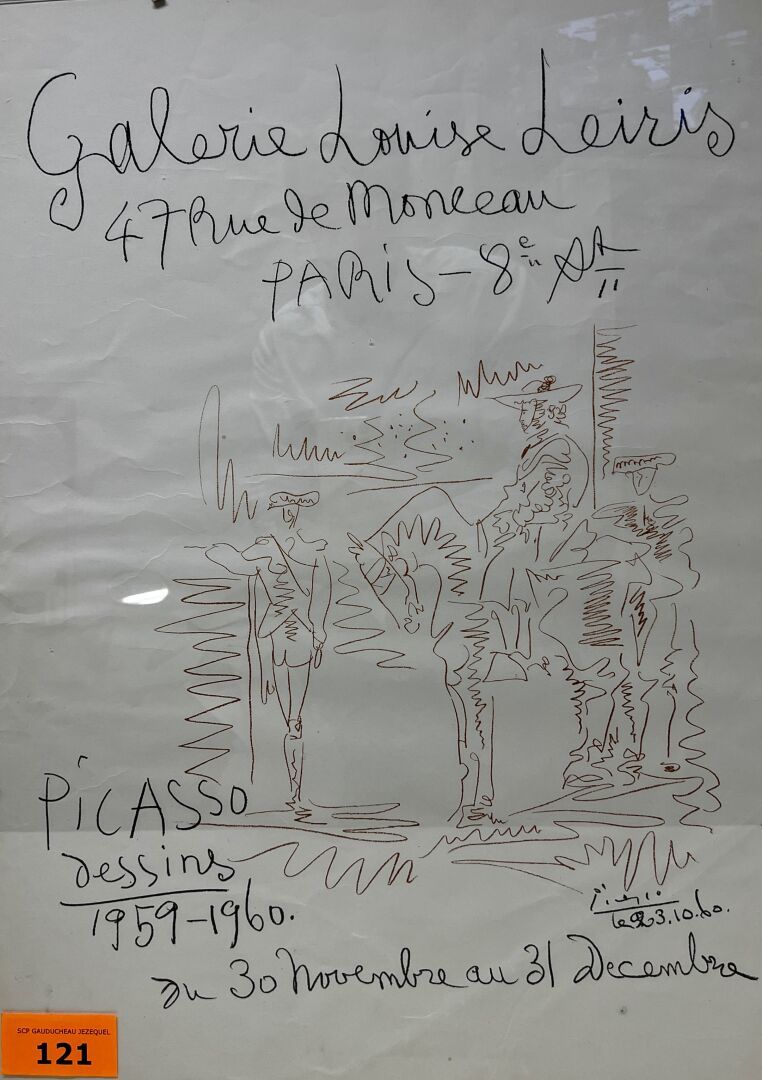 Galerie Louise Leiris
47 Rue de Monceau
PARIS - 8e Arr
PiCASSO
dessins
1959-1960.
le 23.10.60.
du 30 Novembre au 31 Decembre
SCP GAUDUCHEAU JEZEQUEL
121